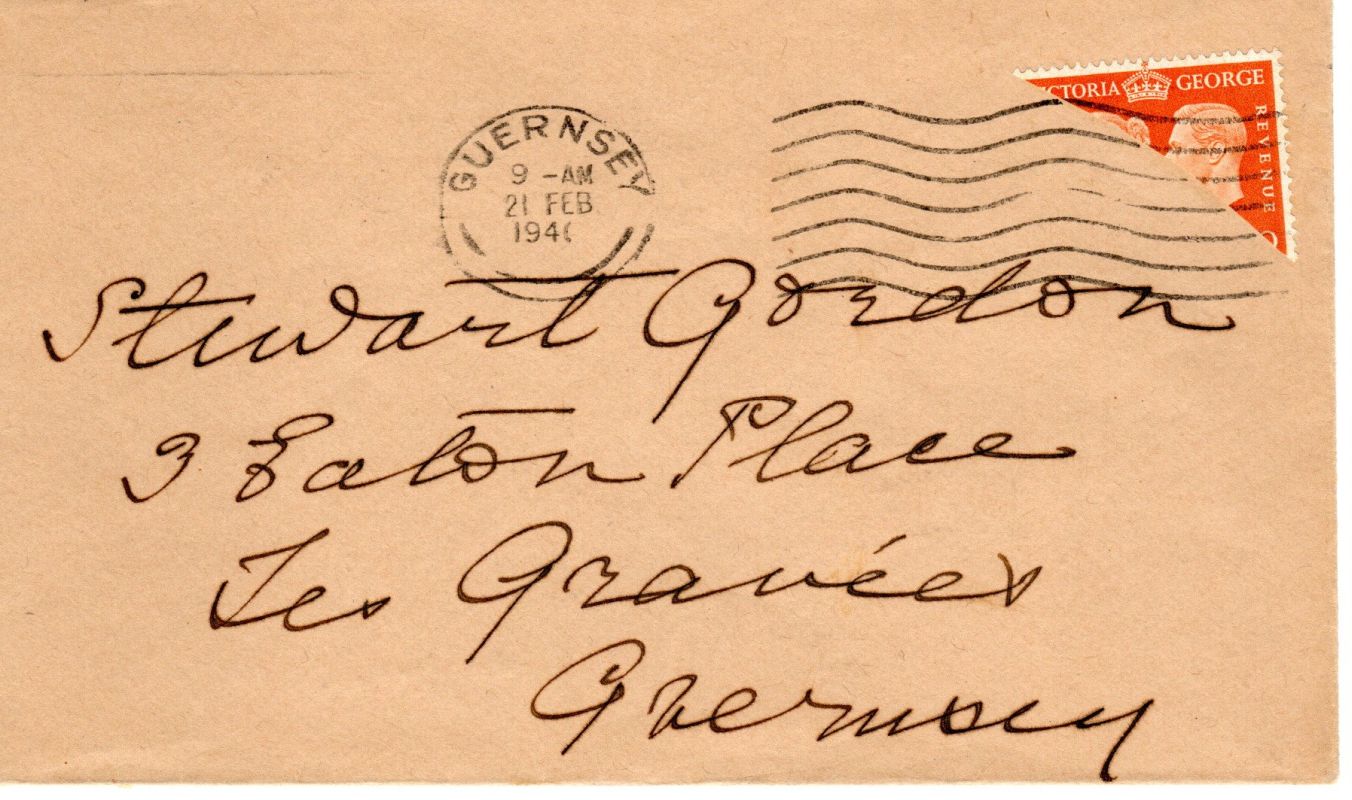 CTORIA GEORGE
REVENUE
GUERNSEY
9 - AM
21 FEB
194
Stewart Gordon
3 Eaton Place
Les Gravées
Guernsey